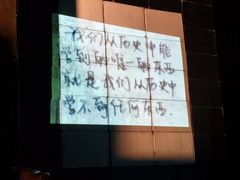 我们从历史中能
学到的唯一的东西
就是我们从历史中
学不到任何东西.